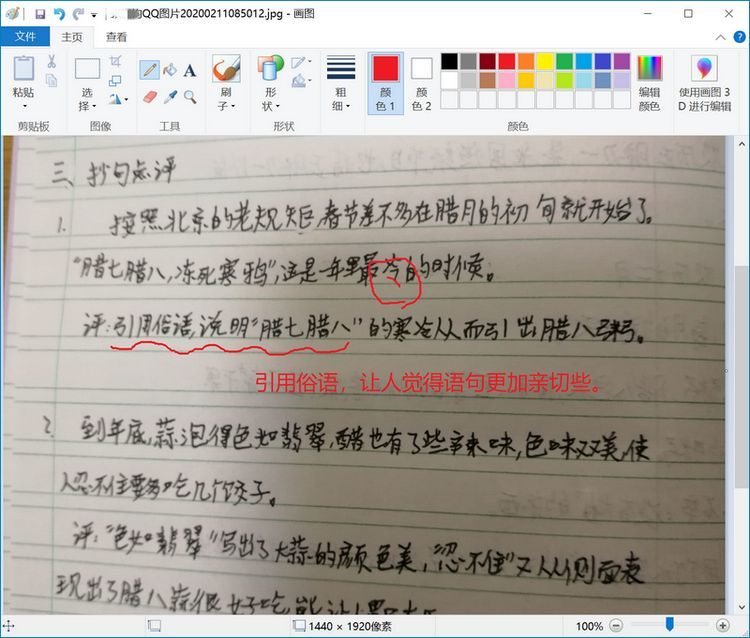 QQ图片20200211085012.jpg - 画图
文件 主页 查看
粘贴 选择 刷子 形状 粗细 颜色 1 颜色 2 编辑颜色 使用画图 3D 进行编辑
剪贴板 图像 工具 形状 颜色
三、抄句点评
1. 按照北京的老规矩春节差不多在腊月的初旬就开始了。
“腊七腊八,冻死寒鸦”,这是一年里最冷的时候。
评:引用俗语,说明“腊七腊八”的寒冷从而引出腊八粥。
引用俗语,让人觉得语句更加亲切些。
2. 到年底,蒜泡得色如翡翠,醋也有了些辛辣味,色味双美,使
人忍不住要多吃几个饺子。
评:“色如翡翠”写出了大蒜的颜色美,“忍不住”又从侧面表
现出了腊八蒜很好吃
1440 × 1920像素 100%